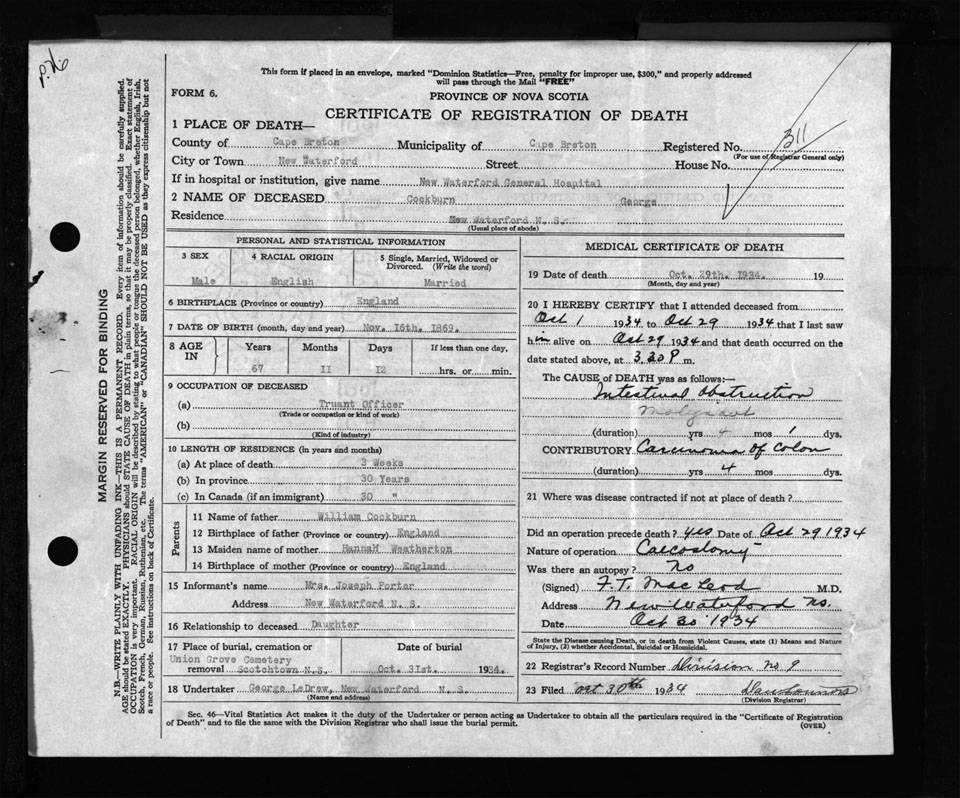 p. 26
This form if placed in an envelope, marked "Dominion Statistics—Free, penalty for improper use, $300," and properly addressed
will pass through the Mail "FREE"
FORM 6.
PROVINCE OF NOVA SCOTIA
CERTIFICATE OF REGISTRATION OF DEATH
1 PLACE OF DEATH—
County of Cape Breton Municipality of Cape Breton Registered No. 311
(For use of Registrar General only)
City or Town New Waterford Street House No.
If in hospital or institution, give name New Waterford General Hospital
2 NAME OF DECEASED Cockburn George
Residence New Waterford N.S.
(Usual place of abode)
PERSONAL AND STATISTICAL INFORMATION
3 SEX 4 RACIAL ORIGIN 5 Single, Married, Widowed or Divorced. (Write the word)
Male English Married
6 BIRTHPLACE (Province or country) England
7 DATE OF BIRTH (month, day and year) Nov. 16th. 1869.
8 AGE IN Years Months Days If less than one day,
67 11 12 hrs. or min.
9 OCCUPATION OF DECEASED
(a) Truant Officer
(Trade or occupation or kind of work)
(b)
(Kind of industry)
10 LENGTH OF RESIDENCE (in years and months)
(a) At place of death 3 Weeks
(b) In province 30 Years
(c) In Canada (if an immigrant) 30 "
Parents
11 Name of father William Cockburn
12 Birthplace of father (Province or country) England
13 Maiden name of mother HannaH Weatherton
14 Birthplace of mother (Province or country) England
15 Informant's name Mrs. Joseph Porter
Address New Waterford N. S.
16 Relationship to deceased Daughter
17 Place of burial, cremation or Date of burial
Union Grove Cemetery
removal Scotchtown N.S. Oct. 31st. 1934.
18 Undertaker George LeDrew, New Waterford N. S.
(Name and address)
MEDICAL CERTIFICATE OF DEATH
19 Date of death Oct. 29th. 1934. 19
(Month, day and year)
20 I HEREBY CERTIFY that I attended deceased from
Oct 1 1934 to Oct 29 1934 that I last saw
him alive on Oct 29 1934 and that death occurred on the
date stated above, at 3.30 P m.
The CAUSE of DEATH was as follows:—
Intestinal Obstruction
Malignant
(duration) yrs 4 mos 1 dys.
CONTRIBUTORY Carcinoma of Colon
(duration) yrs 4 mos. dys.
21 Where was disease contracted if not at place of death?
Did an operation precede death? yes Date of Oct 29 1934
Nature of operation Caecostomy
Was there an autopsy? No
(Signed) F. T. MacLeod M.D.
Address New Waterford NS.
Date Oct 30 1934
State the Disease causing Death, or in death from Violent Causes, state (1) Means and Nature
of Injury, (2) whether Accidental, Suicidal or Homicidal.
22 Registrar's Record Number Division No 9
23 Filed Oct 30th 1934
(Division Registrar)
Sec. 46—Vital Statistics Act makes it the duty of the Undertaker or person acting as Undertaker to obtain all the particulars required in the "Certificate of Registration
of Death" and to file the same with the Division Registrar who shall issue the burial permit.
(OVER)
MARGIN RESERVED FOR BINDING
N.B.—WRITE PLAINLY WITH UNFADING INK—THIS IS A PERMANENT RECORD. Every item of information should be carefully supplied.
AGE should be stated EXACTLY. PHYSICIANS should STATE CAUSE OF DEATH in plain terms, so that it may be properly classified. Exact statement of
OCCUPATION is very important. RACIAL ORIGIN will be described by stating to what people or tongue the deceased person belonged, whether English, Irish,
Scotch, French, German, Russian, Ruthenian, etc. The terms "AMERICAN" or "CANADIAN" SHOULD NOT BE USED as they express citizenship but not
a race or people. See instructions on back of Certificate.